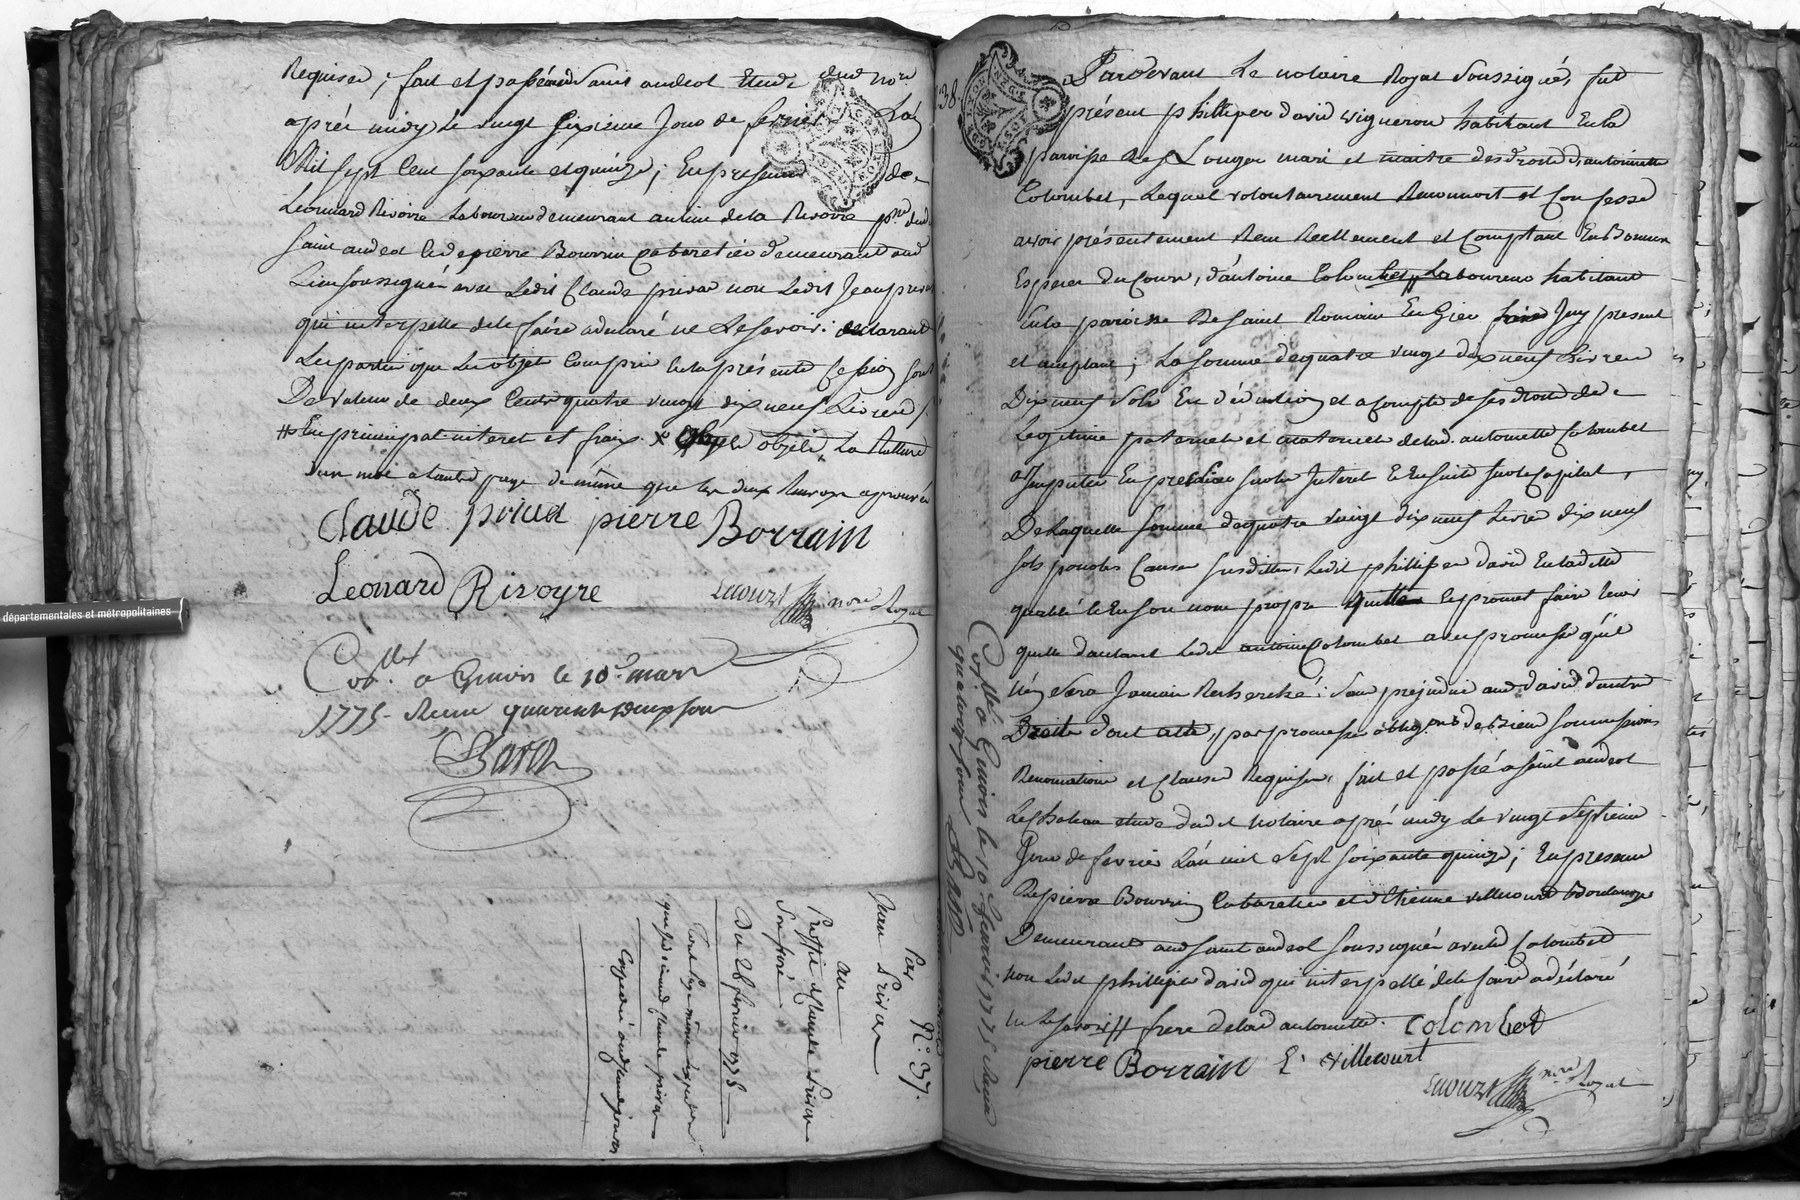 Requises, fait et passé aud Saint andeol Etude dud no.re
après midy le vingt sixieme Jour de fevrier L'an
Mil sept Cent soixante et quinze ; En presence de
Léonard Rivoire Laboureur demeurant au lieu de la Rivoire p.sse dud
Saint andeol et de pierre Bourrin Cabaretier demeurant aud
Lieu soussignés avec Ledit Claude privat non Ledit Jean privat
qui interpellé de le faire a declaré ne Le savoir : declarant
Les parties que Les objets Compris En la présente Cession sont
De valeur de deux Cents quatre vingt dix neuf Livres
En principal interet et frais. objets La Rature
d'un mot a lautre page de même que les deux Renvoys approuvés
Claude privat pierre Borrain
Leonard Rivoyre
no.re Royal
Coll.té a Givors le 10.e mars
1775 - Receu quarante deux sous
Baron
N.° 37.
Par
Jean Privat
au
Proffit de Claude Privat
Son frere
Du 26 fevrier 1775
38
Pardevant Le notaire Royal soussigné, fut
présent phillipes david vigneron habitant En la
paroisse des Longes mari et maitre des droits d'antoinette
Colombet, Lequel volontairement Reconnoit et Confesse
avoir présentement Receu Reellement et Comptant En Bonnes
Especes du Cours, d'antoine Colombet // Laboureur habitant
En la paroisse De Saint Romain En Gier Icy present
et acceptant ; La somme de quatre vingt dix neuf Livres
Dix neuf sols En déduction et a compte de ses droits de
Legitime paternel et maternel de lad. antoinette Colombet
a Imputer En premier sur les Interet et Ensuite sur le Capital,
De Laquelle somme de quatre vingt dix neuf Livres dix neuf
sols pour les Causes susdittes, Ledit phillipes david En ladite
qualité et En son nom propre quitte et promet faire tenir
quitte d'autant Led.t antoine Colombet avec promesse qu'il
n'en sera Jamais Recherché : Sans préjudice aud. david d'autres
Droits dont acte, par promesses oblig.ons de Biens soumissions
Renonciations et Clauses Requises, fait et passé a saint andeol
Le chateau etude dud.t notaire après midy Le vingt septieme
Jour de fevrier L'an mil sept soixante quinze ; En presence
De pierre Bourrin Cabaretier et d'Etienne villecourt Boulanger
Demeurants aud saint andeol soussignés avec led Colombet
non Led.t phillipes david qui interpellé de le faire a déclaré
ne Le savoir // frere de lad. antoinette. Colombet
pierre Borrain E. villecourt
no.re Royal
Coll.té a Givors le 10
quatorze sous Baron
départementales et métropolitaines